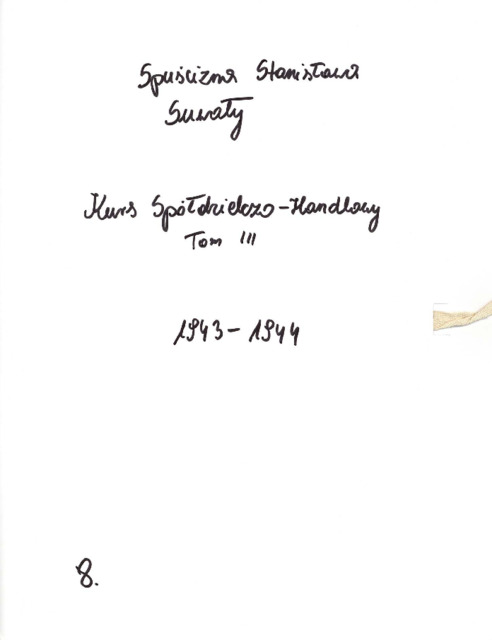 Spuścizna Stanisława
Suwały
Kurs Spółdzielczo-Handlowy
Tom III
1943-1944
8.